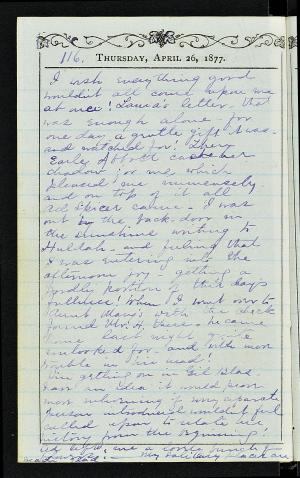 116.
THURSDAY, APRIL 26, 1877.
I wish everything good
wouldn't all come upon me
at once! Laura's letter - that
was enough alone - for
one day, a gentle gift I was
and watched for! Then
Early Abbott cast her
shadow for me which
pleased me immensely.
and on top of it all,
Ad. Spicer came. I was
out by the back-door in
the sunshine writing to
Huldah - and feeling that
I was entering into the
afternoon joy - getting a
goodly portion of this day's
fullness! When I went over to
Aunt Mary's with the check
found Mr. H. there. he came
home last night quite
unlooked for - and with more
trouble in his head!
Am getting on in Gil Blas.
have an idea it would prove
more interesting if every separate
person introduced wouldn't feel
called upon to relate his
history from the beginning!